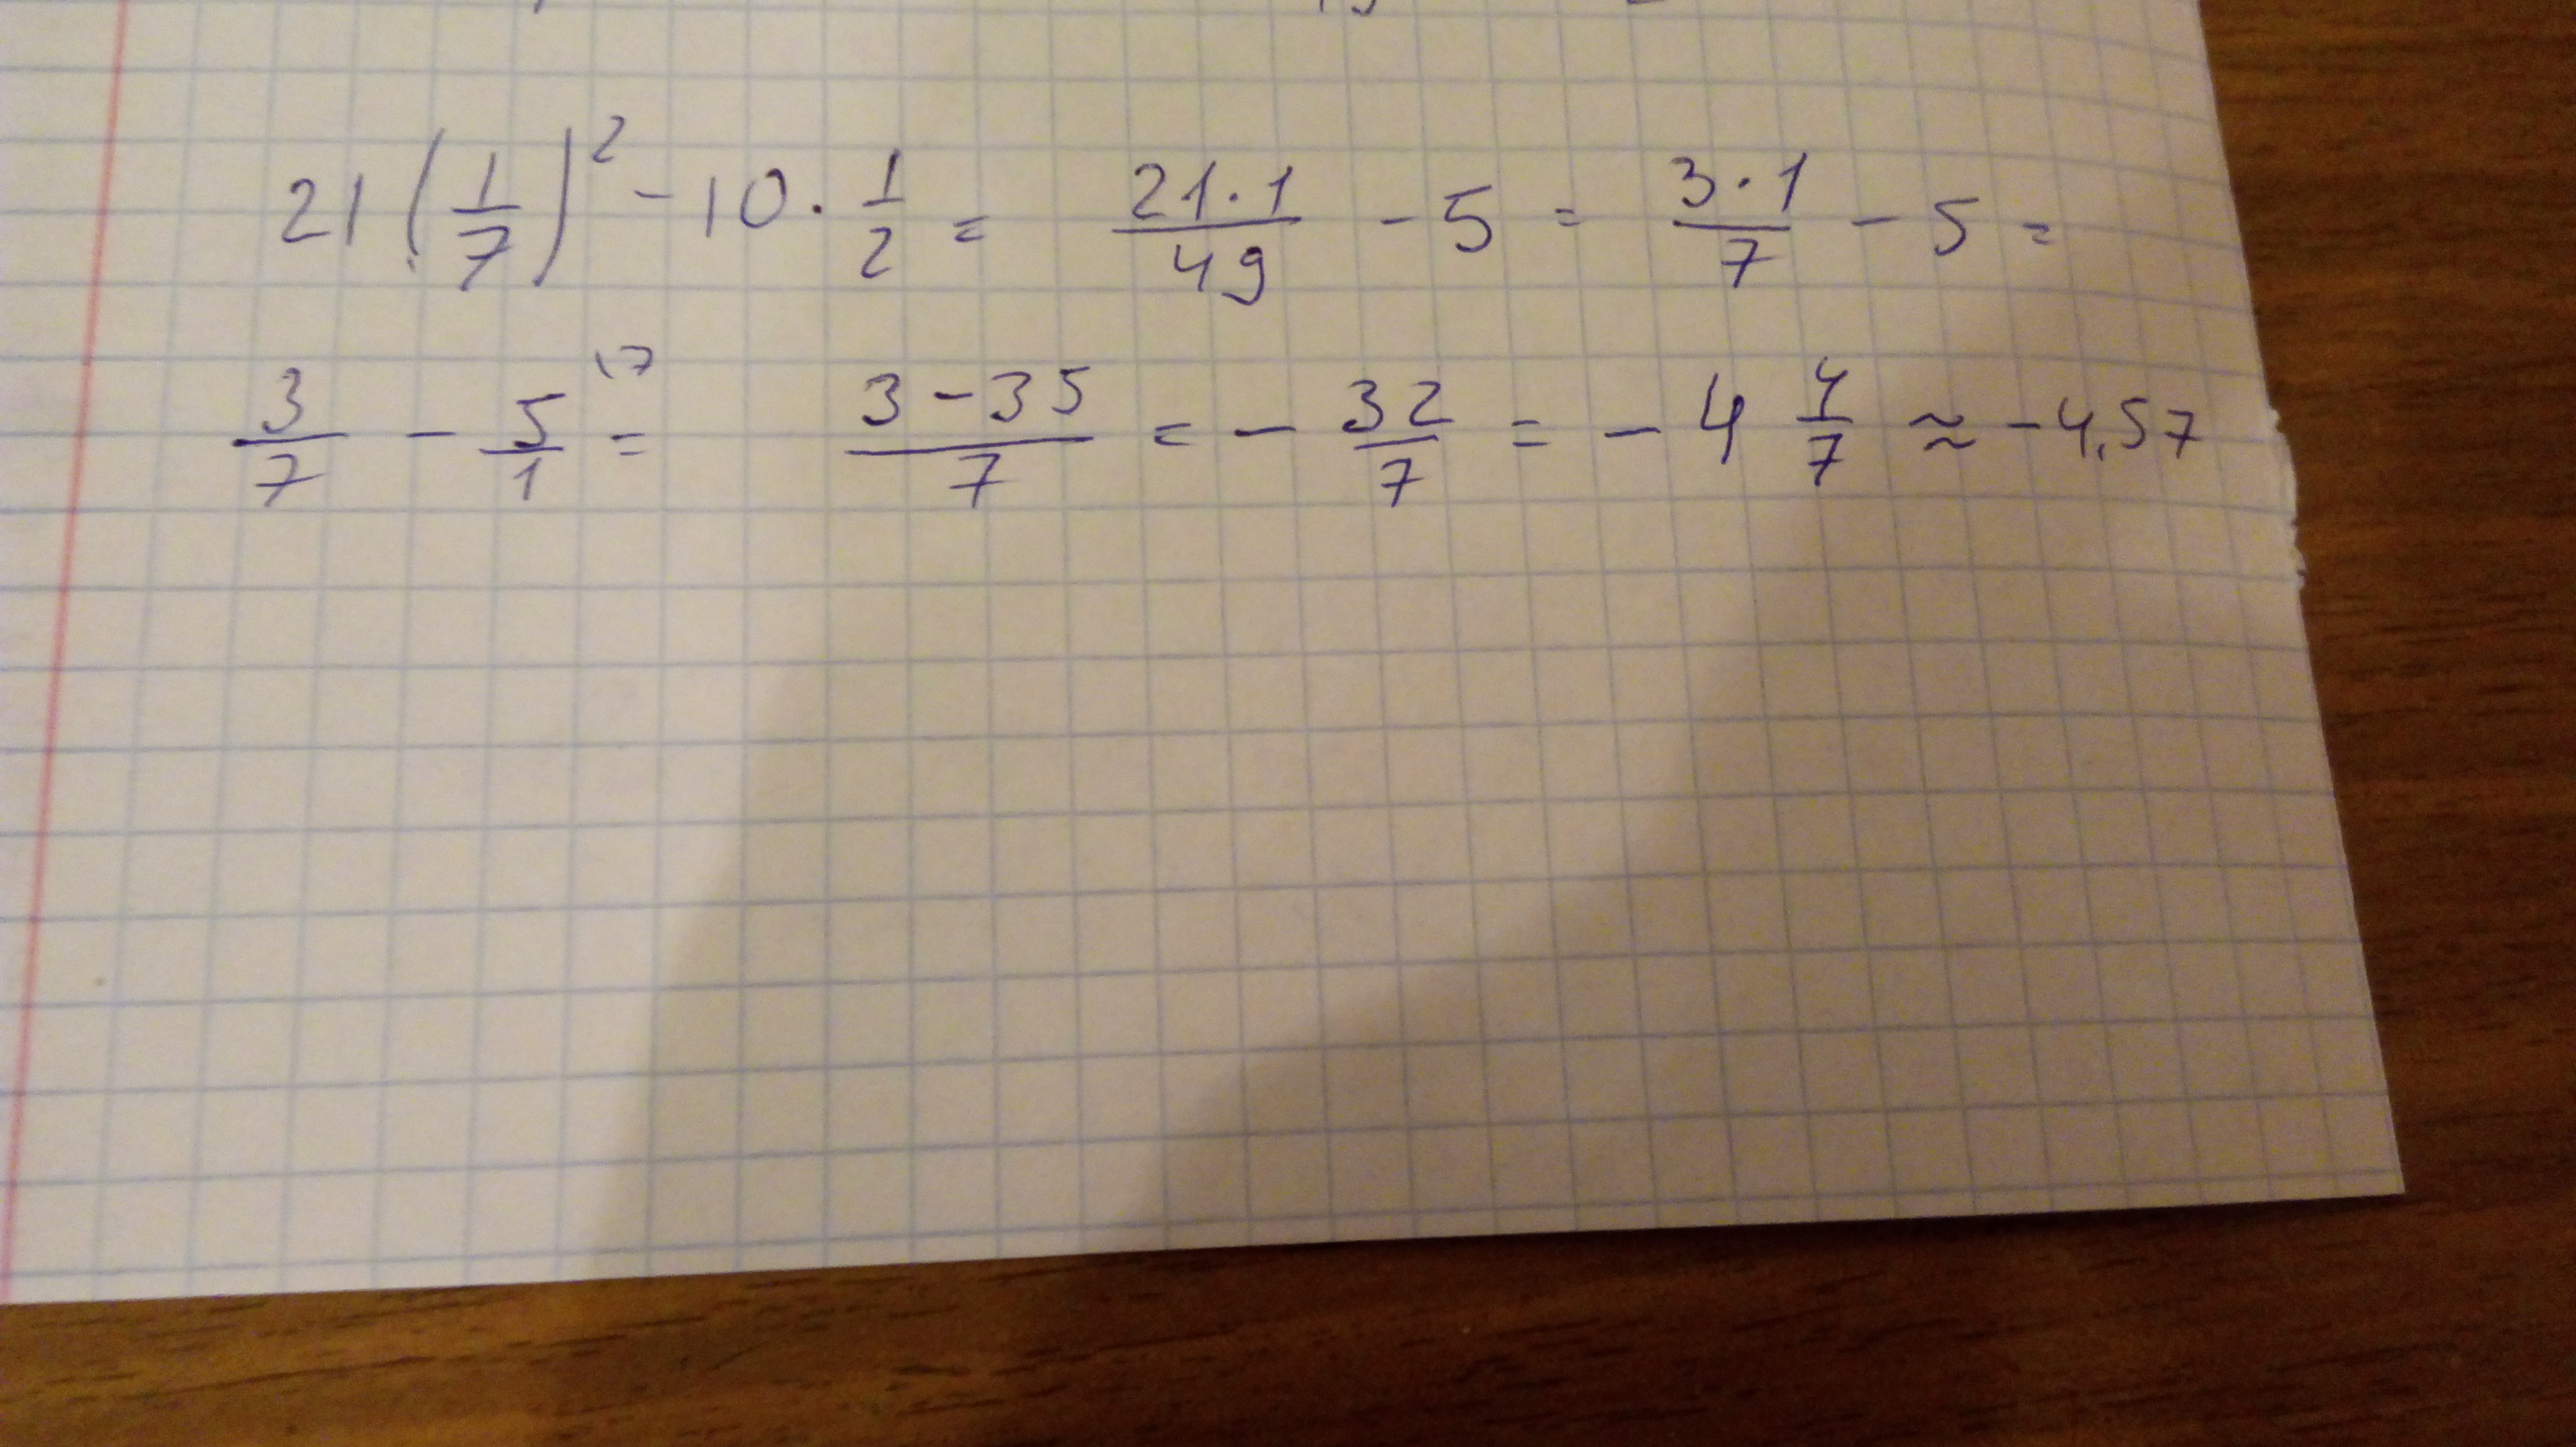 21 (1/7)² - 10 · 1/2 = 21·1/49 - 5 = 3·1/7 - 5 =
3/7 - 5/1 ^{\7} = 3-35/7 = - 32/7 = - 4 4/7 ≈ -4,57